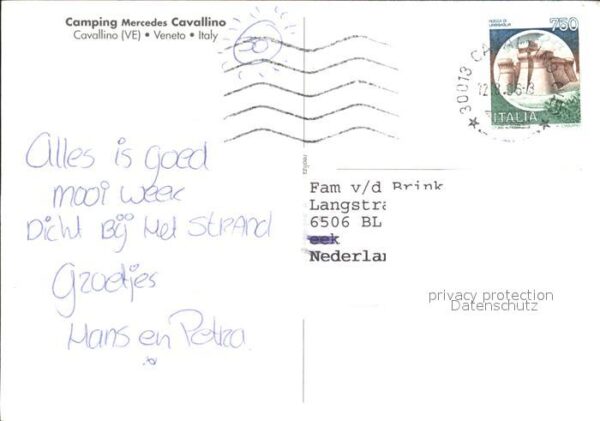 Camping Mercedes Cavallino
Cavallino (VE) • Veneto • Italy
30
ROCCA DI
URBISAGLIA
750
30013 CA
ITALIA
Alles is goed
mooi week
Dicht Bij Het STRAND
Groetjes
Hans en Petra
Fam v/d Brink
Langstra
6506 BL
eek
Nederlan
privacy protection
Datenschutz